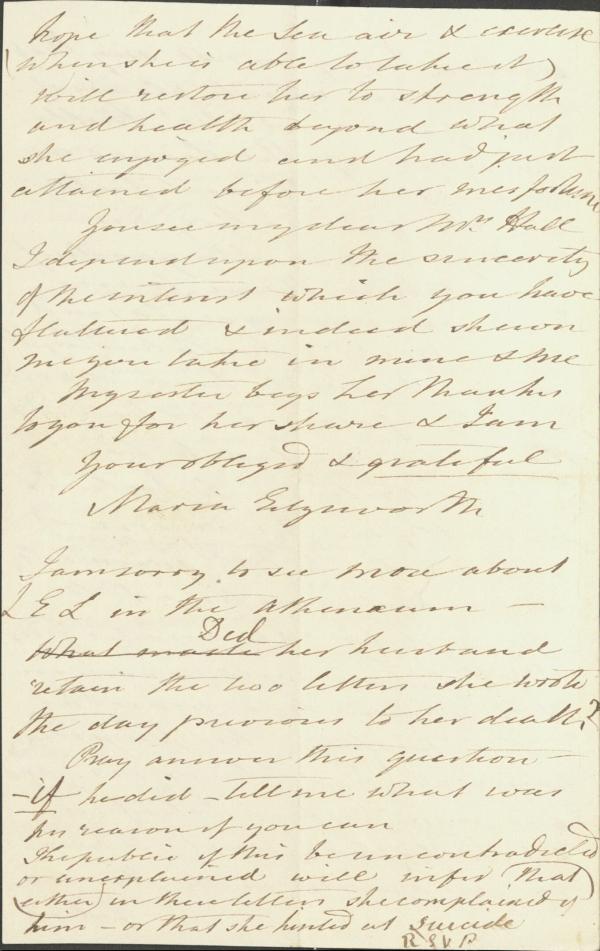 hope that the Sea air & exercise
(when she is able to take it)
will restore her to strength
and health beyond what
she enjoyed and had just
attained before her misfortune
You see my dear Mrs Hall
I depend upon the sincerity
of the interest which you have
flattered & indeed shewn
me you take in mine & me
My sister begs her thanks
to you for her share & I am
Your obliged & grateful
Maria Edgeworth
I am sorry to see more about
L E L in the Atheneum —
What made Did her husband
retain the two letters she wrote
the day previous to her death?
Pray answer this question —
— if he did — tell me what was
his reason if you can
The public if this be uncontradicted
or unexplained will infer (that
either) in these letters she complained of
him — or that she hinted at suicide
R S V P